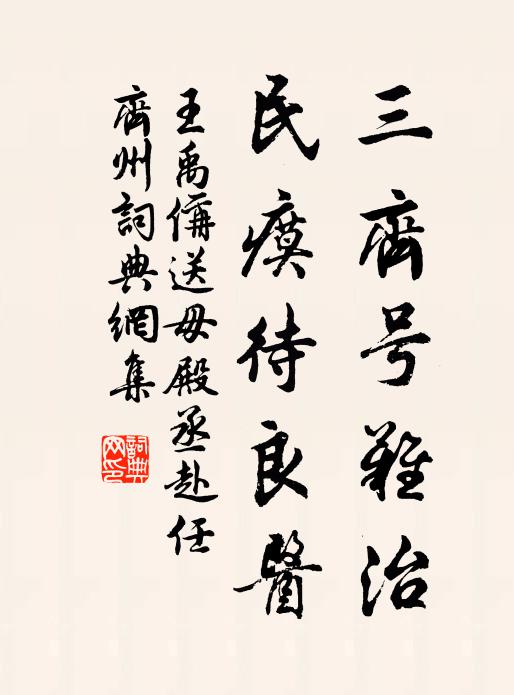 三齊号難治
民瘼待良醫
王禹偁送毋殿丞赴任
齊州詞典網集
詞典网印